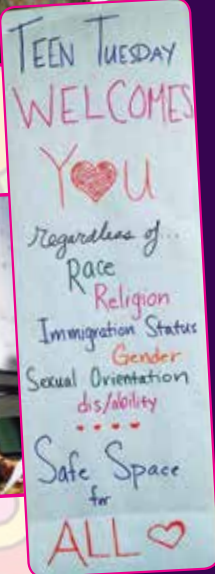 TEEN TUESDAY
WELCOMES
YOU
regardless of...
Race
Religion
Immigration Status
Gender
Sexual Orientation
dis/ability
Safe Space
for
ALL